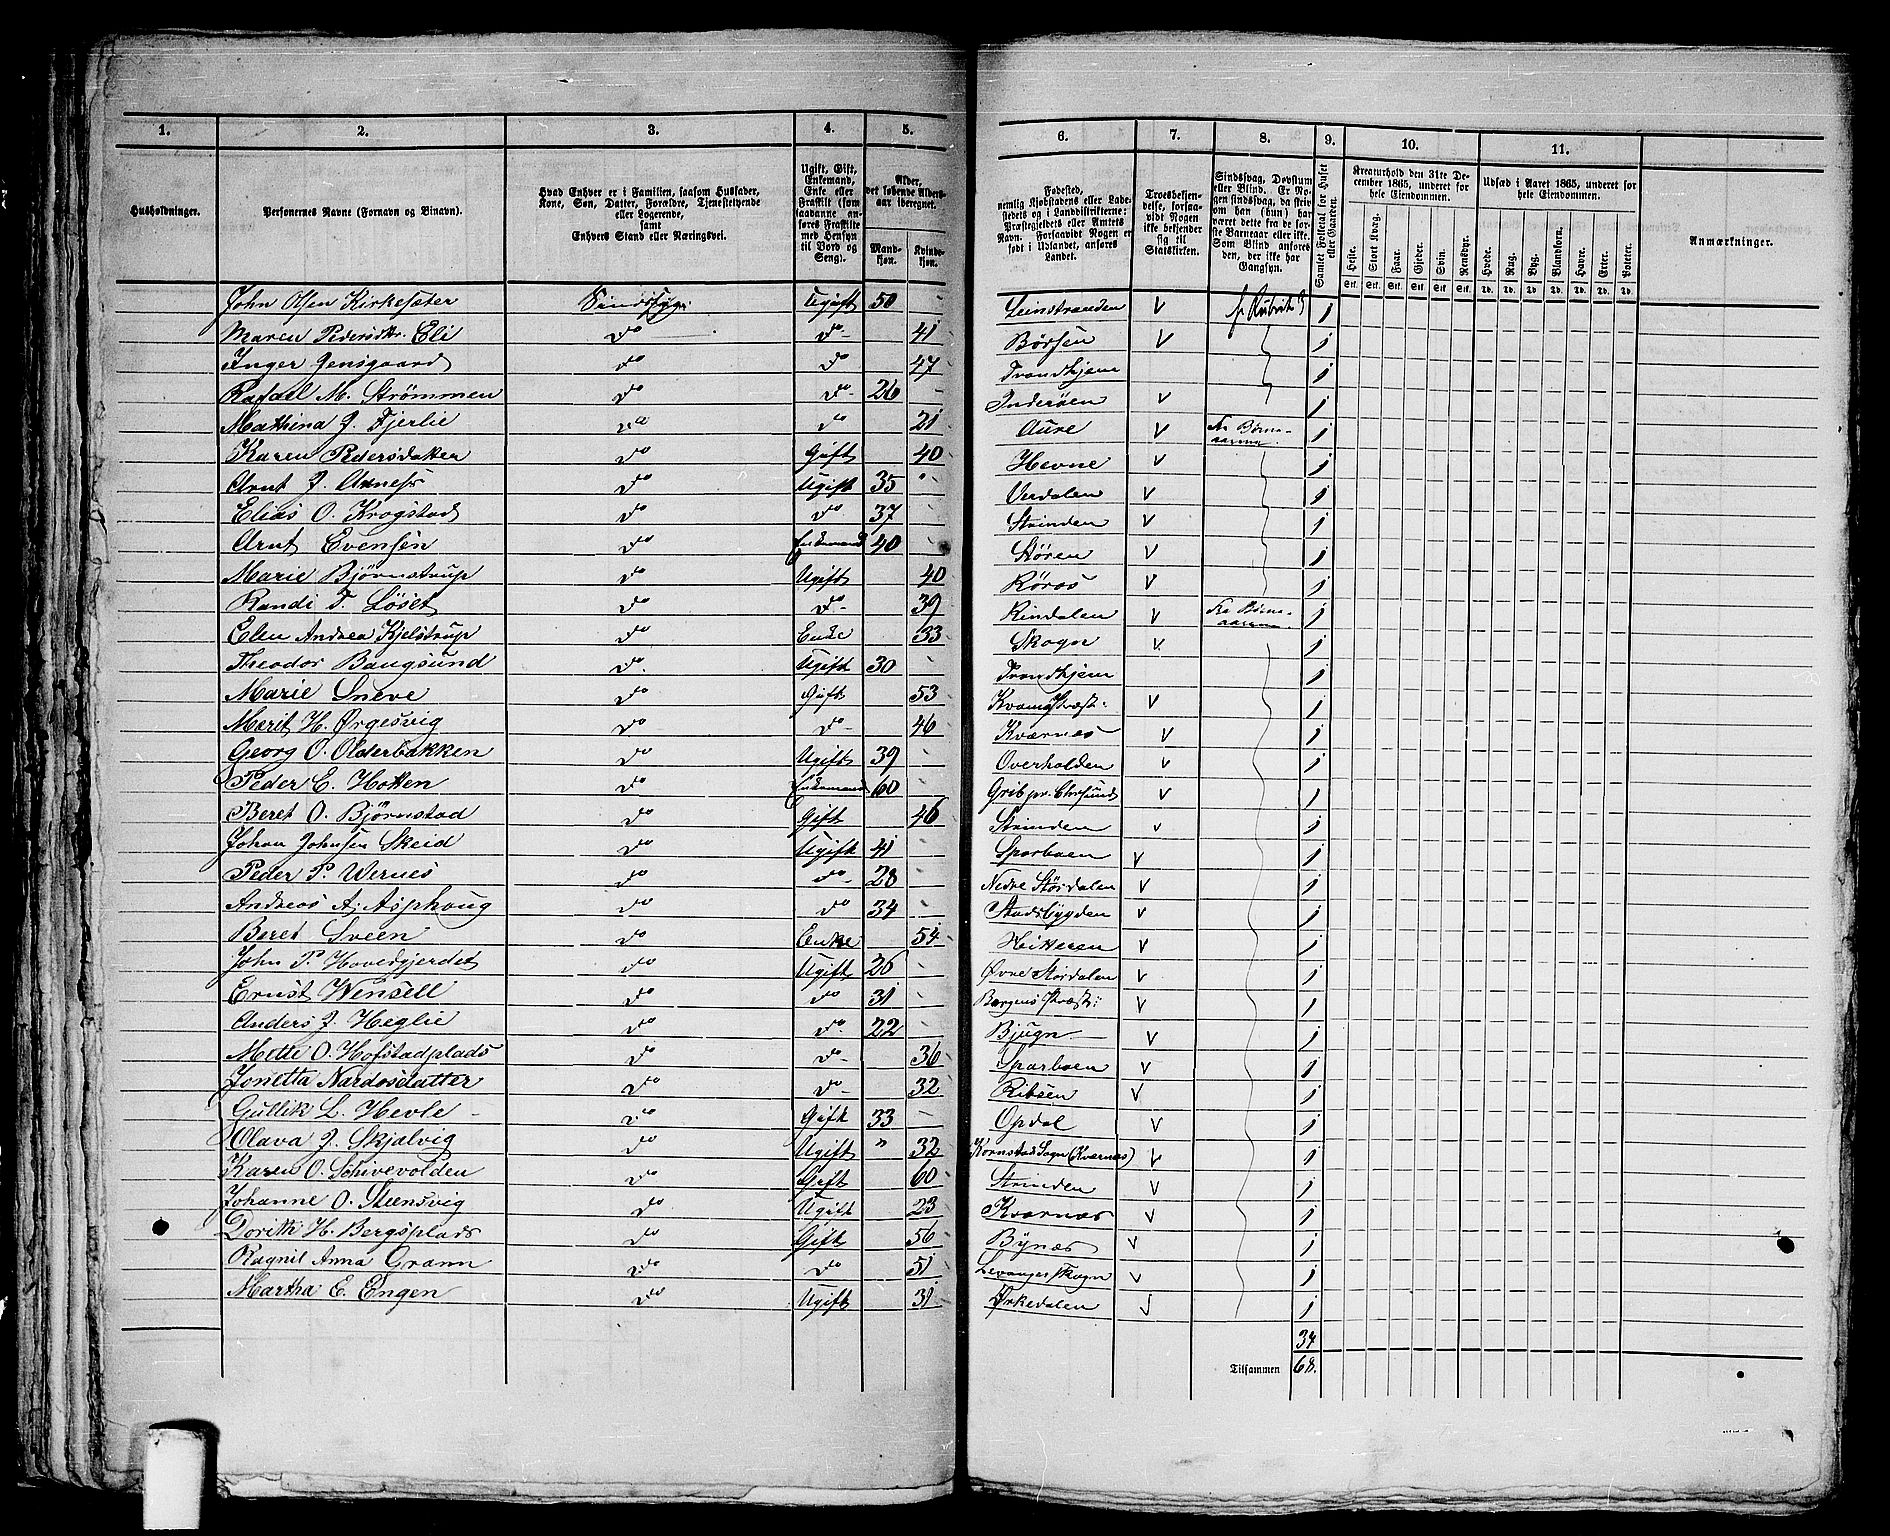 1. 2. 3. 4. 5. 6. 7. 8. 9. 10. 11.
Husholdninger.
Personernes Navne (Fornavn og Binavn).
Hvad Enhver er i Familien, saasom Husfader,
Kone, Søn, Datter, Forældre, Tjenestetyende
eller Logerende,
samt
Enhvers Stand eller Næringsvei.
Ugift, Gift,
Enkemand,
Enke eller
Fraskilt
(som saadanne anføres Fraskilte
med Hensyn
til Bord og
Seng).
Alder,
det løbende Aldersaar iberegnet.
Mandkjøn. Kvindekjøn.
Fødested,
nemlig Kjøbstadens eller Ladestedets og i Landdistrikterne:
Præstegjeldets eller Amtets
Navn. Forsaavidt Nogen er
født i Udlandet, anføres
Landet.
Troesbekjendelse, forsaavidt Nogen
ikke bekjender
sig til
Statskirken.
Sindssvag, Døvstum
eller Blind. Er Nogen sindssvag, da skrives om han (hun) har
været dette fra de første Barneaar eller ikke.
Som Blind anføres
den, der ikke har
Gangsyn.
Samlet Folketal for Huset
eller Gaarden.
Kreaturhold den 31te December 1865, underet for
hele Eiendommen.
Heste. Stort Kvæg. Faar. Gjeder. Svin. Rensdyr.
Stk. Stk. Stk. Stk. Stk. Stk.
Udsæd i Aaret 1865, underet for
hele Eiendommen.
Hvede. Rug. Byg. Blandkorn. Havre. Erter. Poteter.
Td. Td. Td. Td. Td. Td. Td.
Anmærkninger.
John Olsen Kirkesæter Sindssyg Ugift 50 Leinstranden v 1
Maren Pedersdtr. Eli do do 41 Børsen v 1
Inger Jensgaard do do 47 Trondhjem 1
Rafael M. Strømmen do do 26 Inderøen v 1
Mathina J. Fjerlie do do 21 Aure v fra Børneaarene. 1
Karen Pedersdatter do Gift 40 Hevne v 1
Arnt J. Arnesr do Ugift 35 Verdalen v 1
Elias O. Krogstad do do 37 Strinden v 1
Arnt Evensen do Enkemand 40 Støren v 1
Marie Bjørnstrup do Ugift 40 Røros v 1
Randi T. Løset do do 39 Rindalen v fra Børneaarene. 1
Elen Andrea Kjelstrup do Enke 33 Skogn v
Theodor Bangsund do Ugift 30 Trondhjem 1
Marie Sneve do Gift 53 v 1
Marit H. Ørgesvig do do 46 Kværnes v 1
Georg O. Olderbakken do Ugift 39 Overhalden v 1
Peder E. Hotten do Enkemand 60 Grib pr. Chrsund v 1
Beret O. Bjørnstad do Gift 46 Strinden v 1
Johan Johnsen Skeid do Ugift 41 Sparboen v 1
Peder P. Wernes do do 28 Nedre Størdalen v 1
Andreas A. Asphaug do do 34 Stadsbygden v 1
Beret Sveen do Enke 54 Hitteren v 1
John P. Hovedgjerdet do Ugift 26 Øvre Størdalen v 1
Ernst Wensell do do 31 v 1
Anders J. Heglie do do 22 Bjugn v 1
Mette O. Hofstadplads do do 36 Sparboen v 1
Jonetta Nardosdatter do do 32 v 1
Gullik L. Hevle do Gift 33 Opdal v 1
Olava J. Skjølvig do Ugift " 32 Kornstad Sogn (Kværnes) v 1
Karen O. Schivevolden do Gift 60 Strinden v 1
Johanne O. Stensvig do Ugift 23 Kværnæs v 1
Dorith H. Bergsplads do Gift 56 Bynæs v 1
Ragnil Anna Grann do do 51 v 1
Martha E. Engen do Ugift 31 Ørkedalen v 1
34
Tilsammen 68.